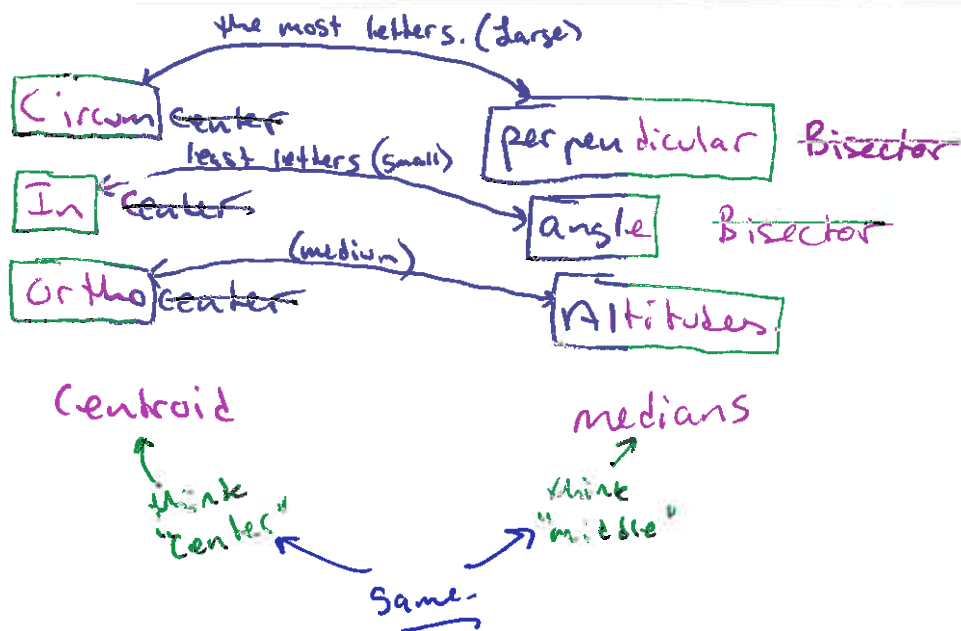 the most letters. (Large)
Circum center perpendicular Bisector
least letters (small)
In center angle Bisector
(medium)
Ortho center Altitudes.
Centroid medians
think think
"center" "middle"
Same.